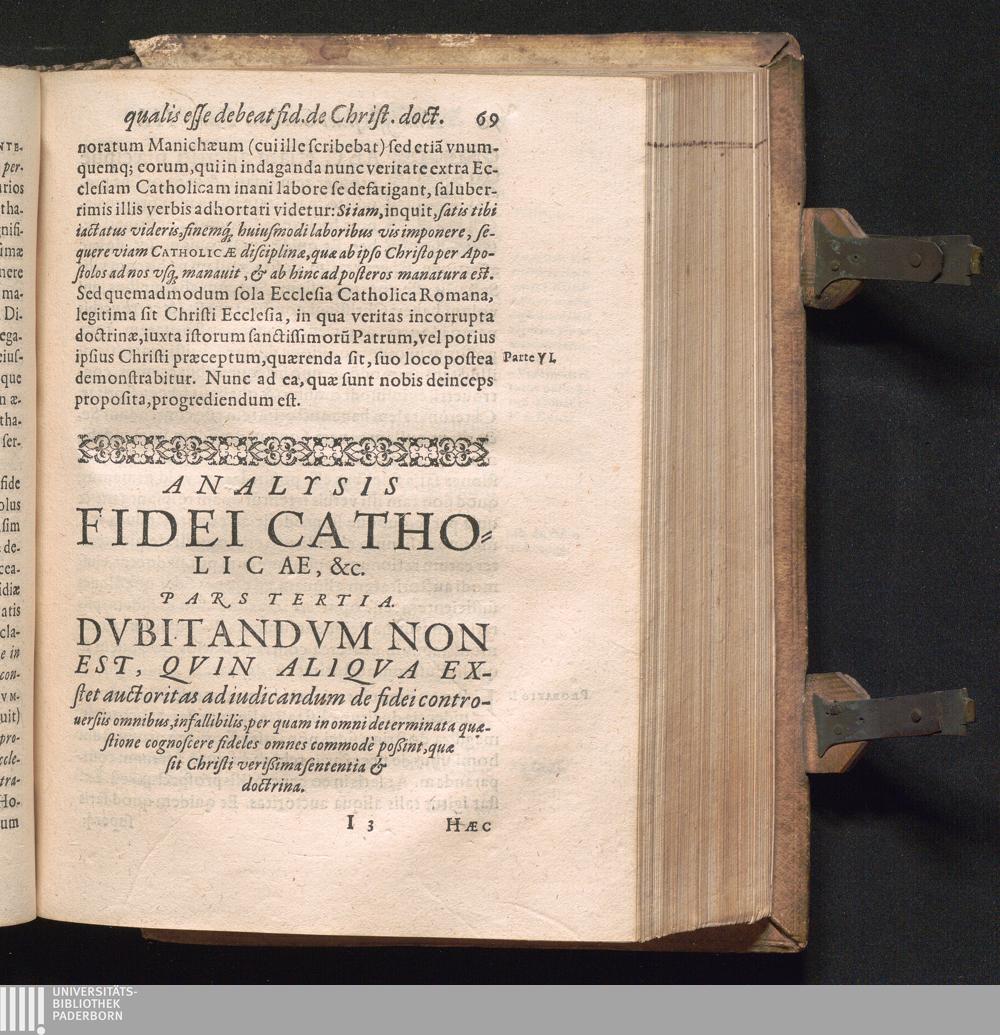 qualis eſſe debeat fid. de Chriſt. doct. 69
noratum Manichæum (cui ille ſcribebat) ſed etiã vnum-
quemq; eorum, qui in indaganda nunc veritate extra Ec-
cleſiam Catholicam inani labore ſe defatigant, ſaluber-
rimis illis verbis adhortari videtur: Si iam, inquit, ſatis tibi
iactatus videris, finemq́; huiuſmodi laboribus vis imponere, ſe-
quere viam CATHOLICÆ diſciplinæ, quæ ab ipſo Chriſto per Apo-
ſtolos ad nos vſq; manauit, & ab hinc ad poſteros manatura eſt.
Sed quemadmodum ſola Eccleſia Catholica Romana,
legitima ſit Chriſti Eccleſia, in qua veritas incorrupta
doctrinæ, iuxta iſtorum ſanctiſſimorũ Patrum, vel potius
ipſius Chriſti præceptum, quærenda ſit, ſuo loco poſtea
Parte VI.
demonſtrabitur. Nunc ad ea, quæ ſunt nobis deinceps
propoſita, progrediendum eſt.
ANALYSIS
FIDEI CATHO-
LICAE, &c.
PARS TERTIA.
DVBITANDVM NON
EST, QVIN ALIQVA EX-
ſtet auctoritas ad iudicandum de fidei contro-
uerſiis omnibus, infallibilis, per quam in omni determinata quæ-
ſtione cognoſcere fideles omnes commodè poßint, quæ
ſit Chriſti verißima ſententia &
doctrina.
I 3 HÆC
NTE-
per-
arios
tha-
gnifi-
imæ
nere
ma-
Di-
ega-
eiuſ-
que
n æ-
tha-
ſer-
fide
olus
ſim
de-
cea-
idiæ
atis
cla-
e in
con-
VM-
uit)
pro-
ccle-
tra-
Ho-
um
UNIVERSITÄTS-
BIBLIOTHEK
PADERBORN